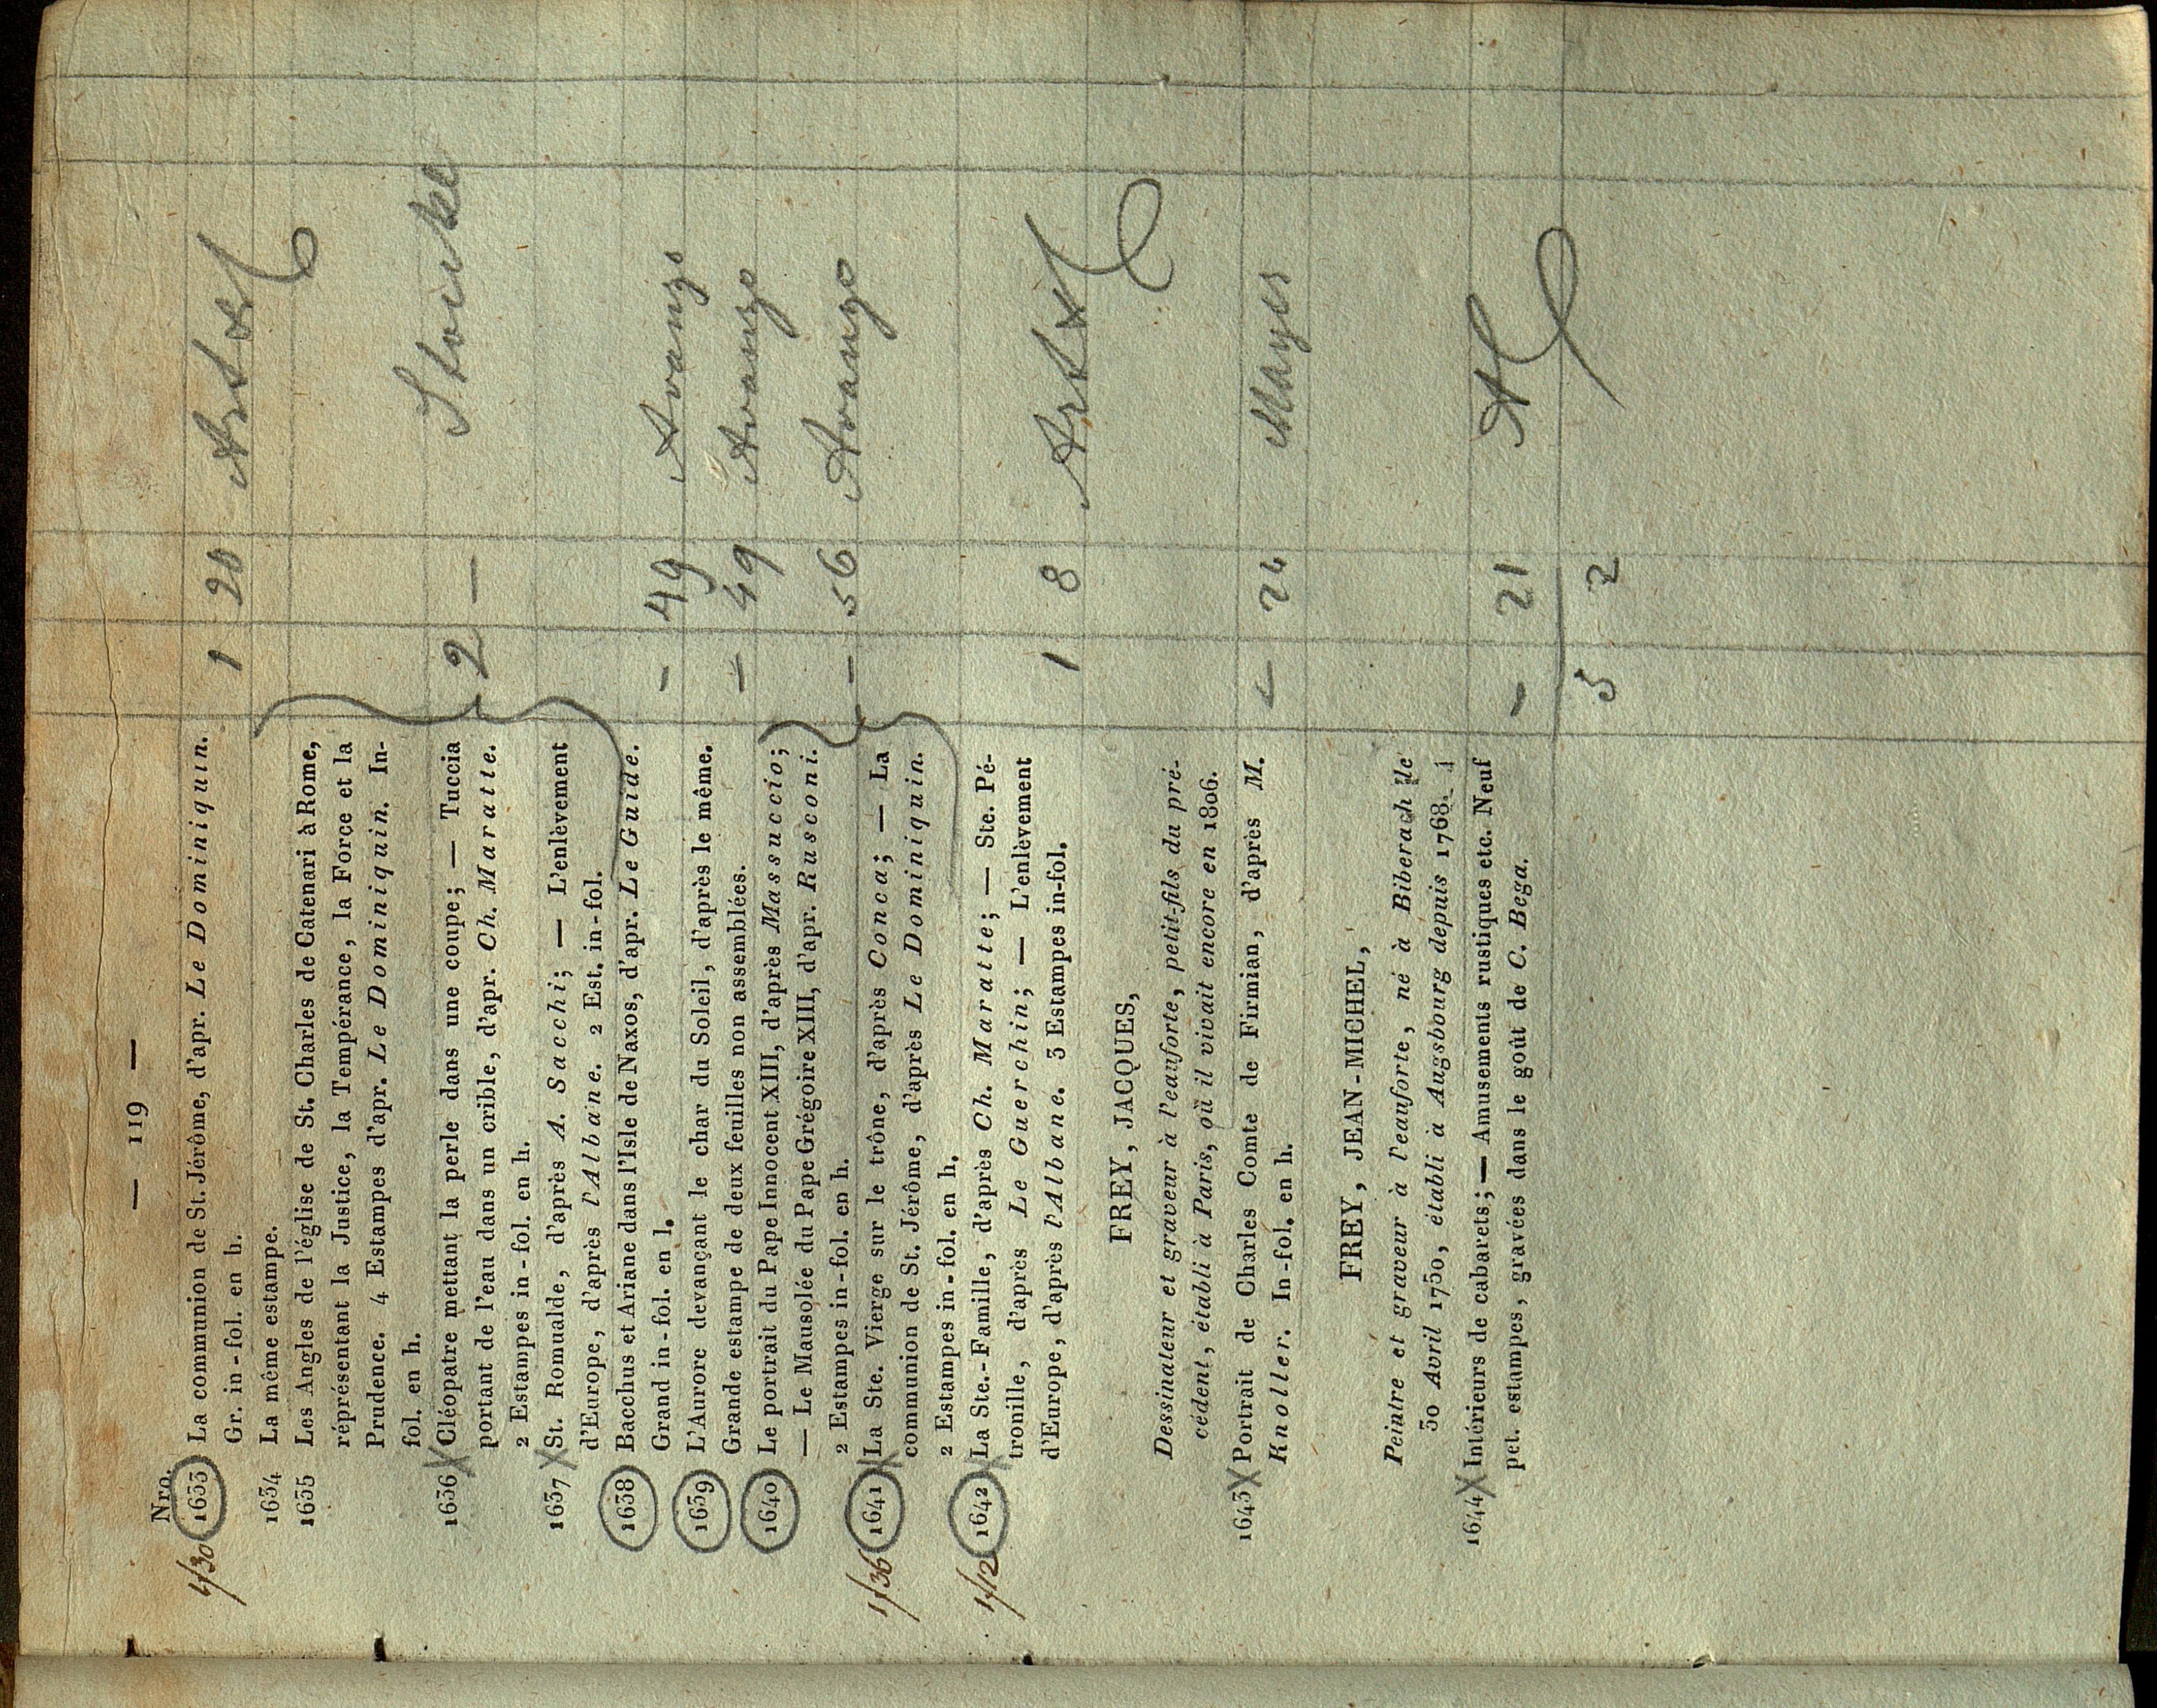 — 119 —
Nro.
1/30 1633 La communion de St. Jérôme, d'apr. Le Dominiquin. 1 20
Gr. in-fol. en h.
1634 La même estampe.
1635 Les Angles de l'église de St. Charles de Catenari à Rome,
réprésentant la Justice, la Tempérance, la Force et la
Prudence. 4 Estampes d'apr. Le Dominiquin. In-
fol. en h.
1636 X Cléopatre mettant la perle dans une coupe; — Tuccia 2 —
portant de l'eau dans un crible, d'apr. Ch. Maratte.
2 Estampes in-fol. en h.
1637 X St. Romualde, d'après A. Sacchi; — L'enlèvement
d'Europe, d'après l'Albane. 2 Est. in-fol.
1638 Bacchus et Ariane dans l'Isle de Naxos, d'apr. Le Guide. — 49 Avanzo
Grand in-fol. en l.
1639 L'Aurore devançant le char du Soleil, d'après le même. — 49 Avanzo
Grande estampe de deux feuilles non assemblées.
1640 Le portrait du Pape Innocent XIII, d'après Massuccio;
— Le Mausolée du Pape Grégoire XIII, d'apr. Rusconi. — 56 Avanzo
2 Estampes in-fol. en h.
1/36 1641 X La Ste. Vierge sur le trône, d'après Conca; — La
communion de St. Jérôme, d'après Le Dominiquin.
2 Estampes in-fol. en h.
1/12 1642 X La Ste.-Famille, d'après Ch. Maratte; — Ste. Pé-
tronille, d'après Le Guerchin; — L'enlèvement 1 8
d'Europe, d'après l'Albane. 3 Estampes in-fol.
FREY, JACQUES,
Dessinateur et graveur à l'eauforte, petit-fils du pré-
cédent, établi à Paris, où il vivait encore en 1806.
1643 X Portrait de Charles Comte de Firmian, d'après M. — 24 Mayer
Knoller. In-fol. en h.
FREY, JEAN-MICHEL,
Peintre et graveur à l'eauforte, né à Biberach le
30 Avril 1750, établi à Augsbourg depuis 1768.
1644 X Intérieurs de cabarets; — Amusements rustiques etc. Neuf
pet. estampes, gravées dans le goût de C. Bega. — 21
5 2